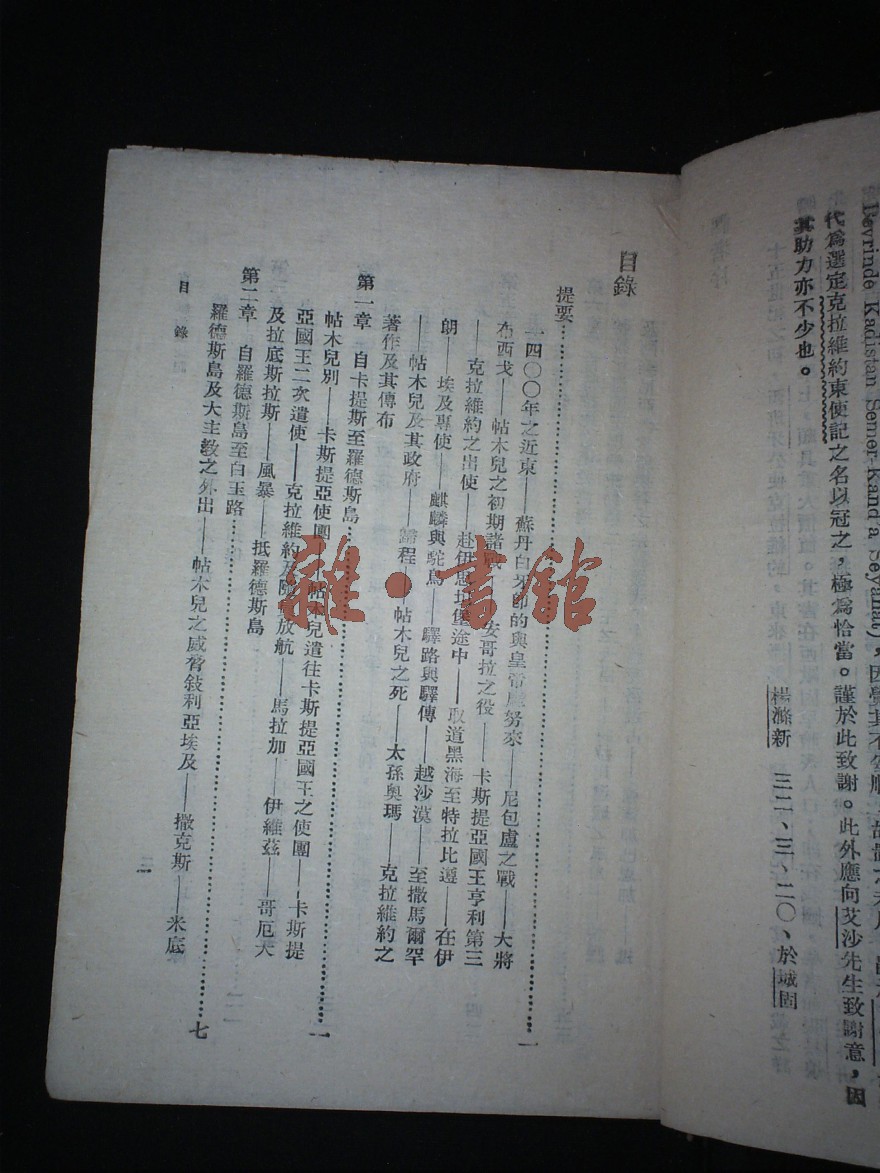 Devrinde Kadistan Semer-Kand'a Seyahat),因覺其不
代爲選定克拉維約東使記之名以冠之,極爲恰當。謹於此致謝。此外應向艾沙先生致謝意,因
其助力亦不少也。
楊滌新 三二、三、二〇、於城固
目錄
提要……一
一四〇〇年之近東——蘇丹白牙即的與皇帝 努來——尼包盧之戰——大將
布西戈——帖木兒之初期諸戰——安哥拉之役——卡斯提亞國王亨利第三
——克拉維約之出使——赴伊思坦堡途中——取道黑海至特拉比遵——在伊
朗——埃及專使——麒麟與駝鳥——驛路與驛傳——越沙漠——至撒馬爾罕
——帖木兒及其政府——歸程——帖木兒之死——太孫奧瑪——克拉維約之
著作及其傳布
第一章 自卡提斯至羅德斯島……一
帖木兒別——卡斯提亞使團——帖木兒遣往卡斯提亞國王之使團——卡斯提
亞國王二次遣使——克拉維約及 放航——馬拉加——伊維茲——哥厄大
及拉底斯拉斯——風暴——抵羅德斯島
第二章 自羅德斯島至白玉路……七
羅德斯島及大主教之外出——帖木兒之威脅敍利亞埃及——撒克斯——米底
目錄
二一
雜·書館